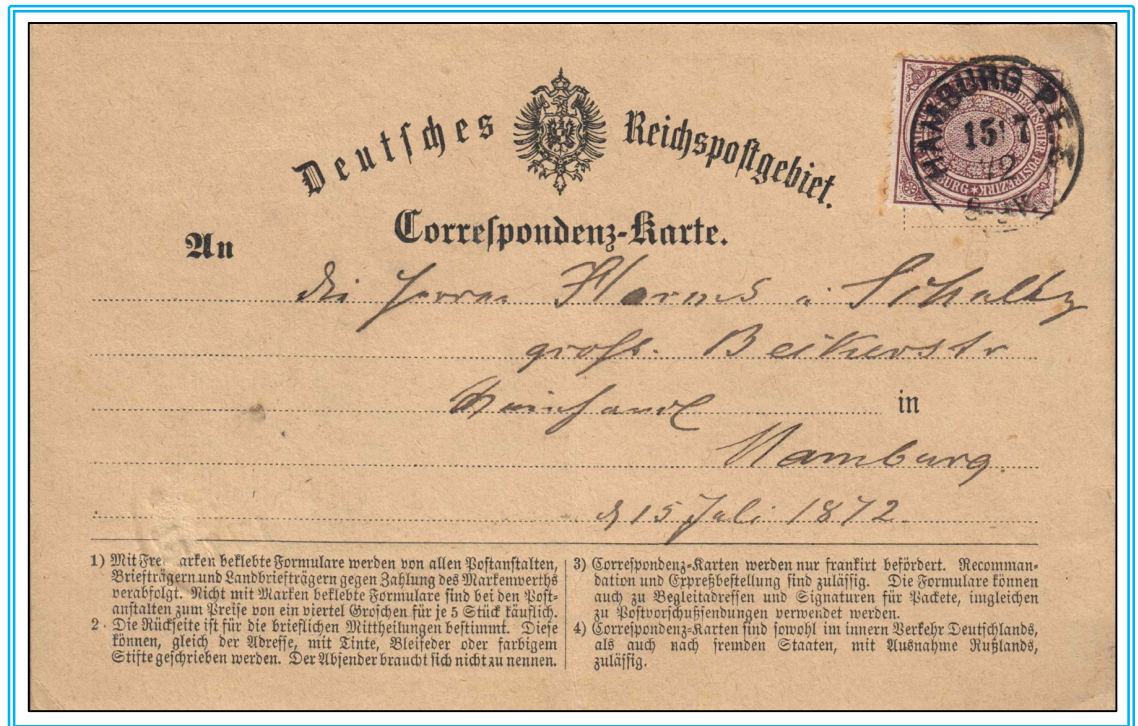 Deutsches Reichspostgebiet.
HAMBURG P.E.1
15 7
72
8-9V.
NORDDEUTSCHER POSTBEZIRK * HAMBURG *
Correspondenz-Karte.
An
die Herren Harms u. Schultz
groß. Beckerstr
in
Hamburg.
d 15 Juli 1872.
1) Mit Fre marken beklebte Formulare werden von allen Postanstalten,
Briefträgern und Landbriefträgern gegen Zahlung des Markenwerths
verabfolgt. Nicht mit Marken beklebte Formulare sind bei den Post-
anstalten zum Preise von ein viertel Groschen für je 5 Stück käuflich.
2. Die Rückseite ist für die brieflichen Mittheilungen bestimmt. Diese
können, gleich der Adresse, mit Tinte, Bleifeder oder farbigem
Stifte geschrieben werden. Der Absender braucht sich nicht zu nennen.
3) Correspondenz-Karten werden nur frankirt befördert. Recomman-
dation und Expreßbestellung sind zulässig. Die Formulare können
auch zu Begleitadressen und Signaturen für Packete, imgleichen
zu Postvorschußsendungen verwendet werden.
4) Correspondenz-Karten sind sowohl im innern Verkehr Deutschlands,
als auch nach fremden Staaten, mit Ausnahme Rußlands,
zulässig.